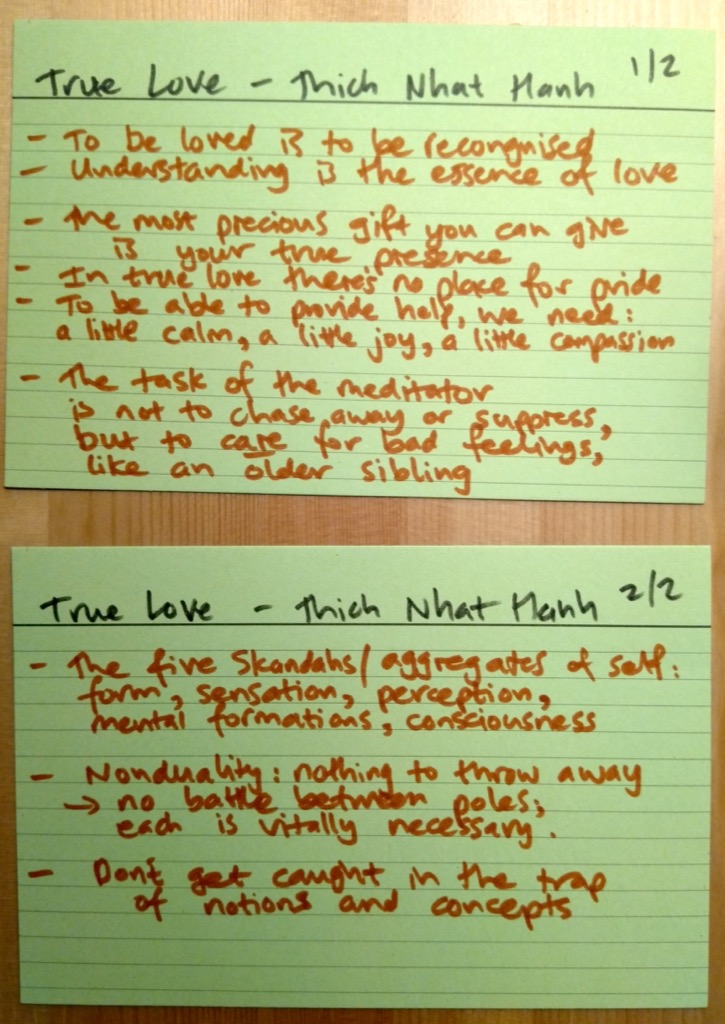 True Love - Thich Nhat Hanh 1/2
- To be loved is to be recongnised
- Understanding is the essence of love
- The most precious gift you can give
is your true presence
- In true love there's no place for pride
- To be able to provide help, we need:
a little calm, a little joy, a little compassion
- The task of the meditator
is not to chase away or suppress,
but to care for bad feelings,
like an older sibling
True Love - Thich Nhat Hanh 2/2
- The five Skandahs/aggregates of self:
form, sensation, perception,
mental formations, consciousness
- Nonduality: nothing to throw away
→ no battle between poles;
each is vitally necessary.
- Don't get caught in the trap
of notions and concepts